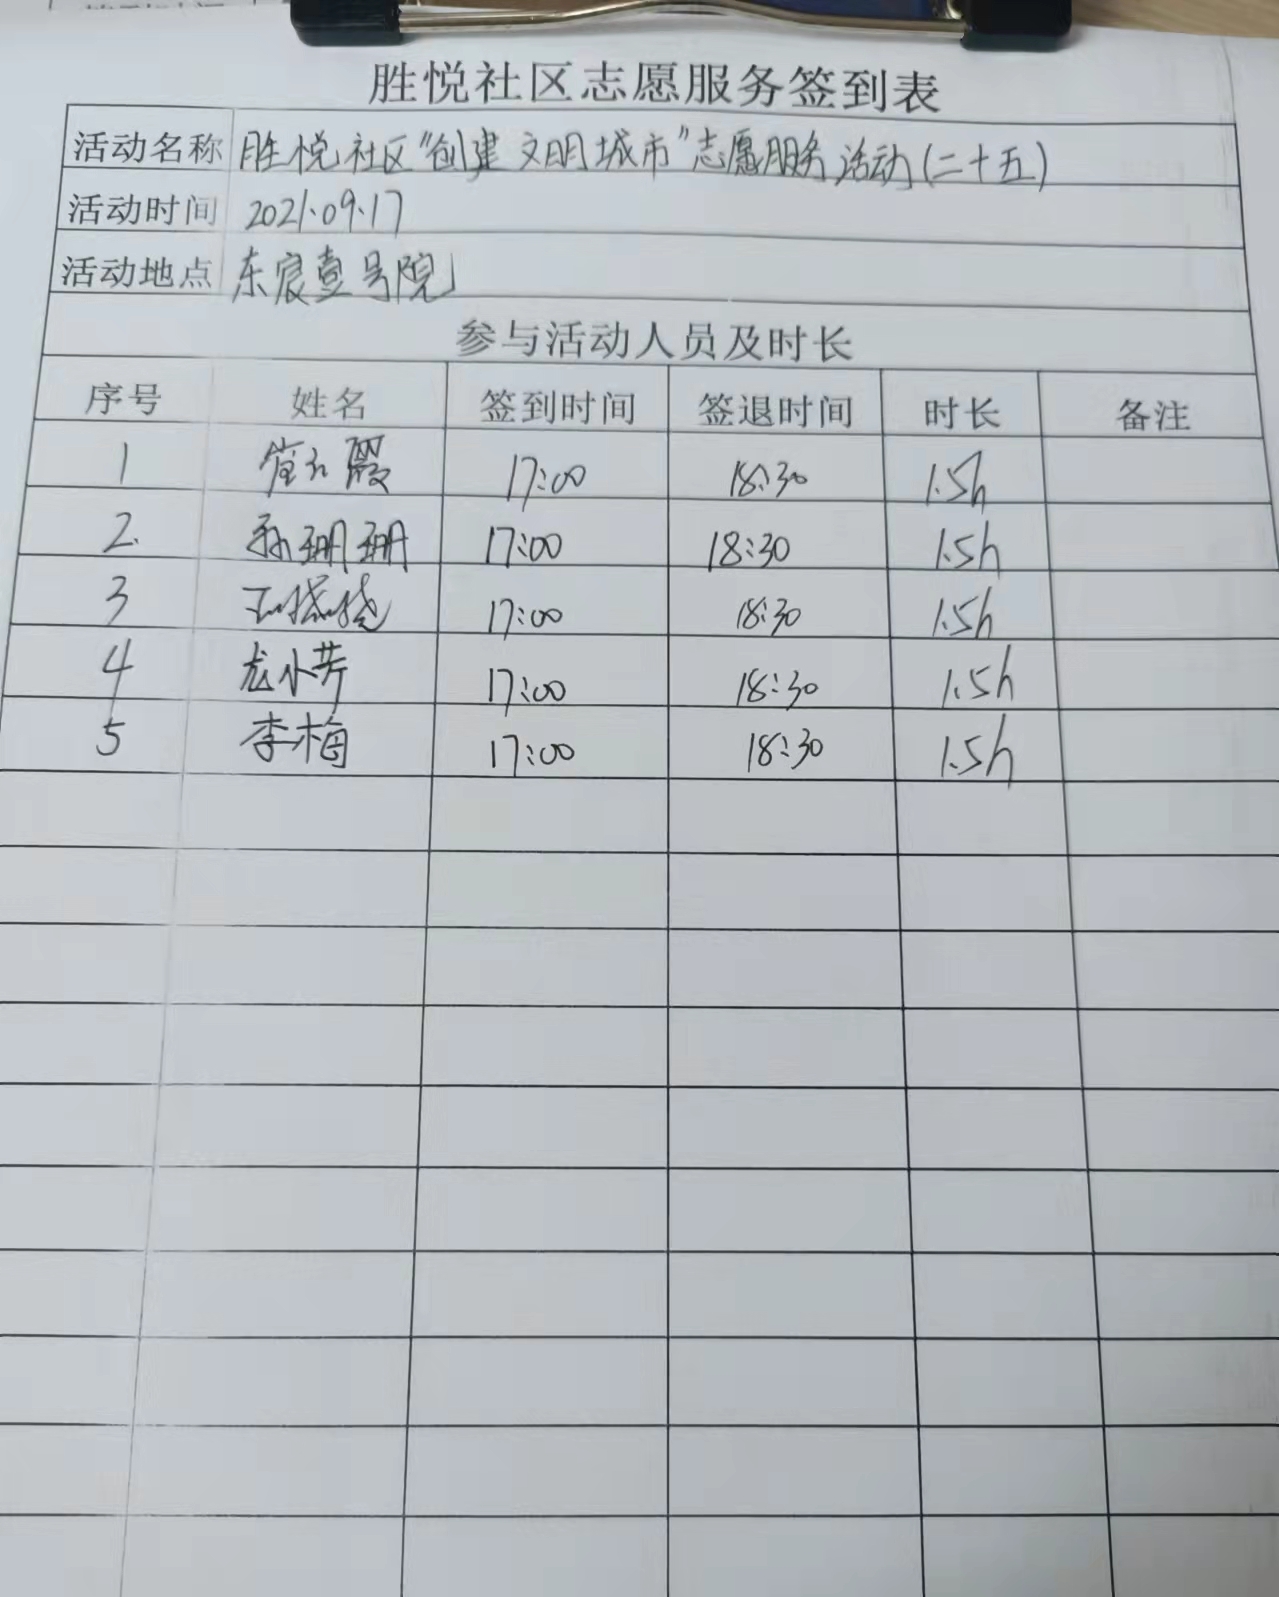 胜悦社区志愿服务签到表
活动名称 胜悦社区“创建文明城市”志愿服务活动(二十五)
活动时间 2021.09.17
活动地点 东宸壹号院
参与活动人员及时长
序号 姓名 签到时间 签退时间 时长 备注
1 17:00 18:30 1.5h
2. 孙珊珊 17:00 18:30 1.5h
3 17:00 18:30 1.5h
4 龙小芳 17:00 18:30 1.5h
5 李梅 17:00 18:30 1.5h